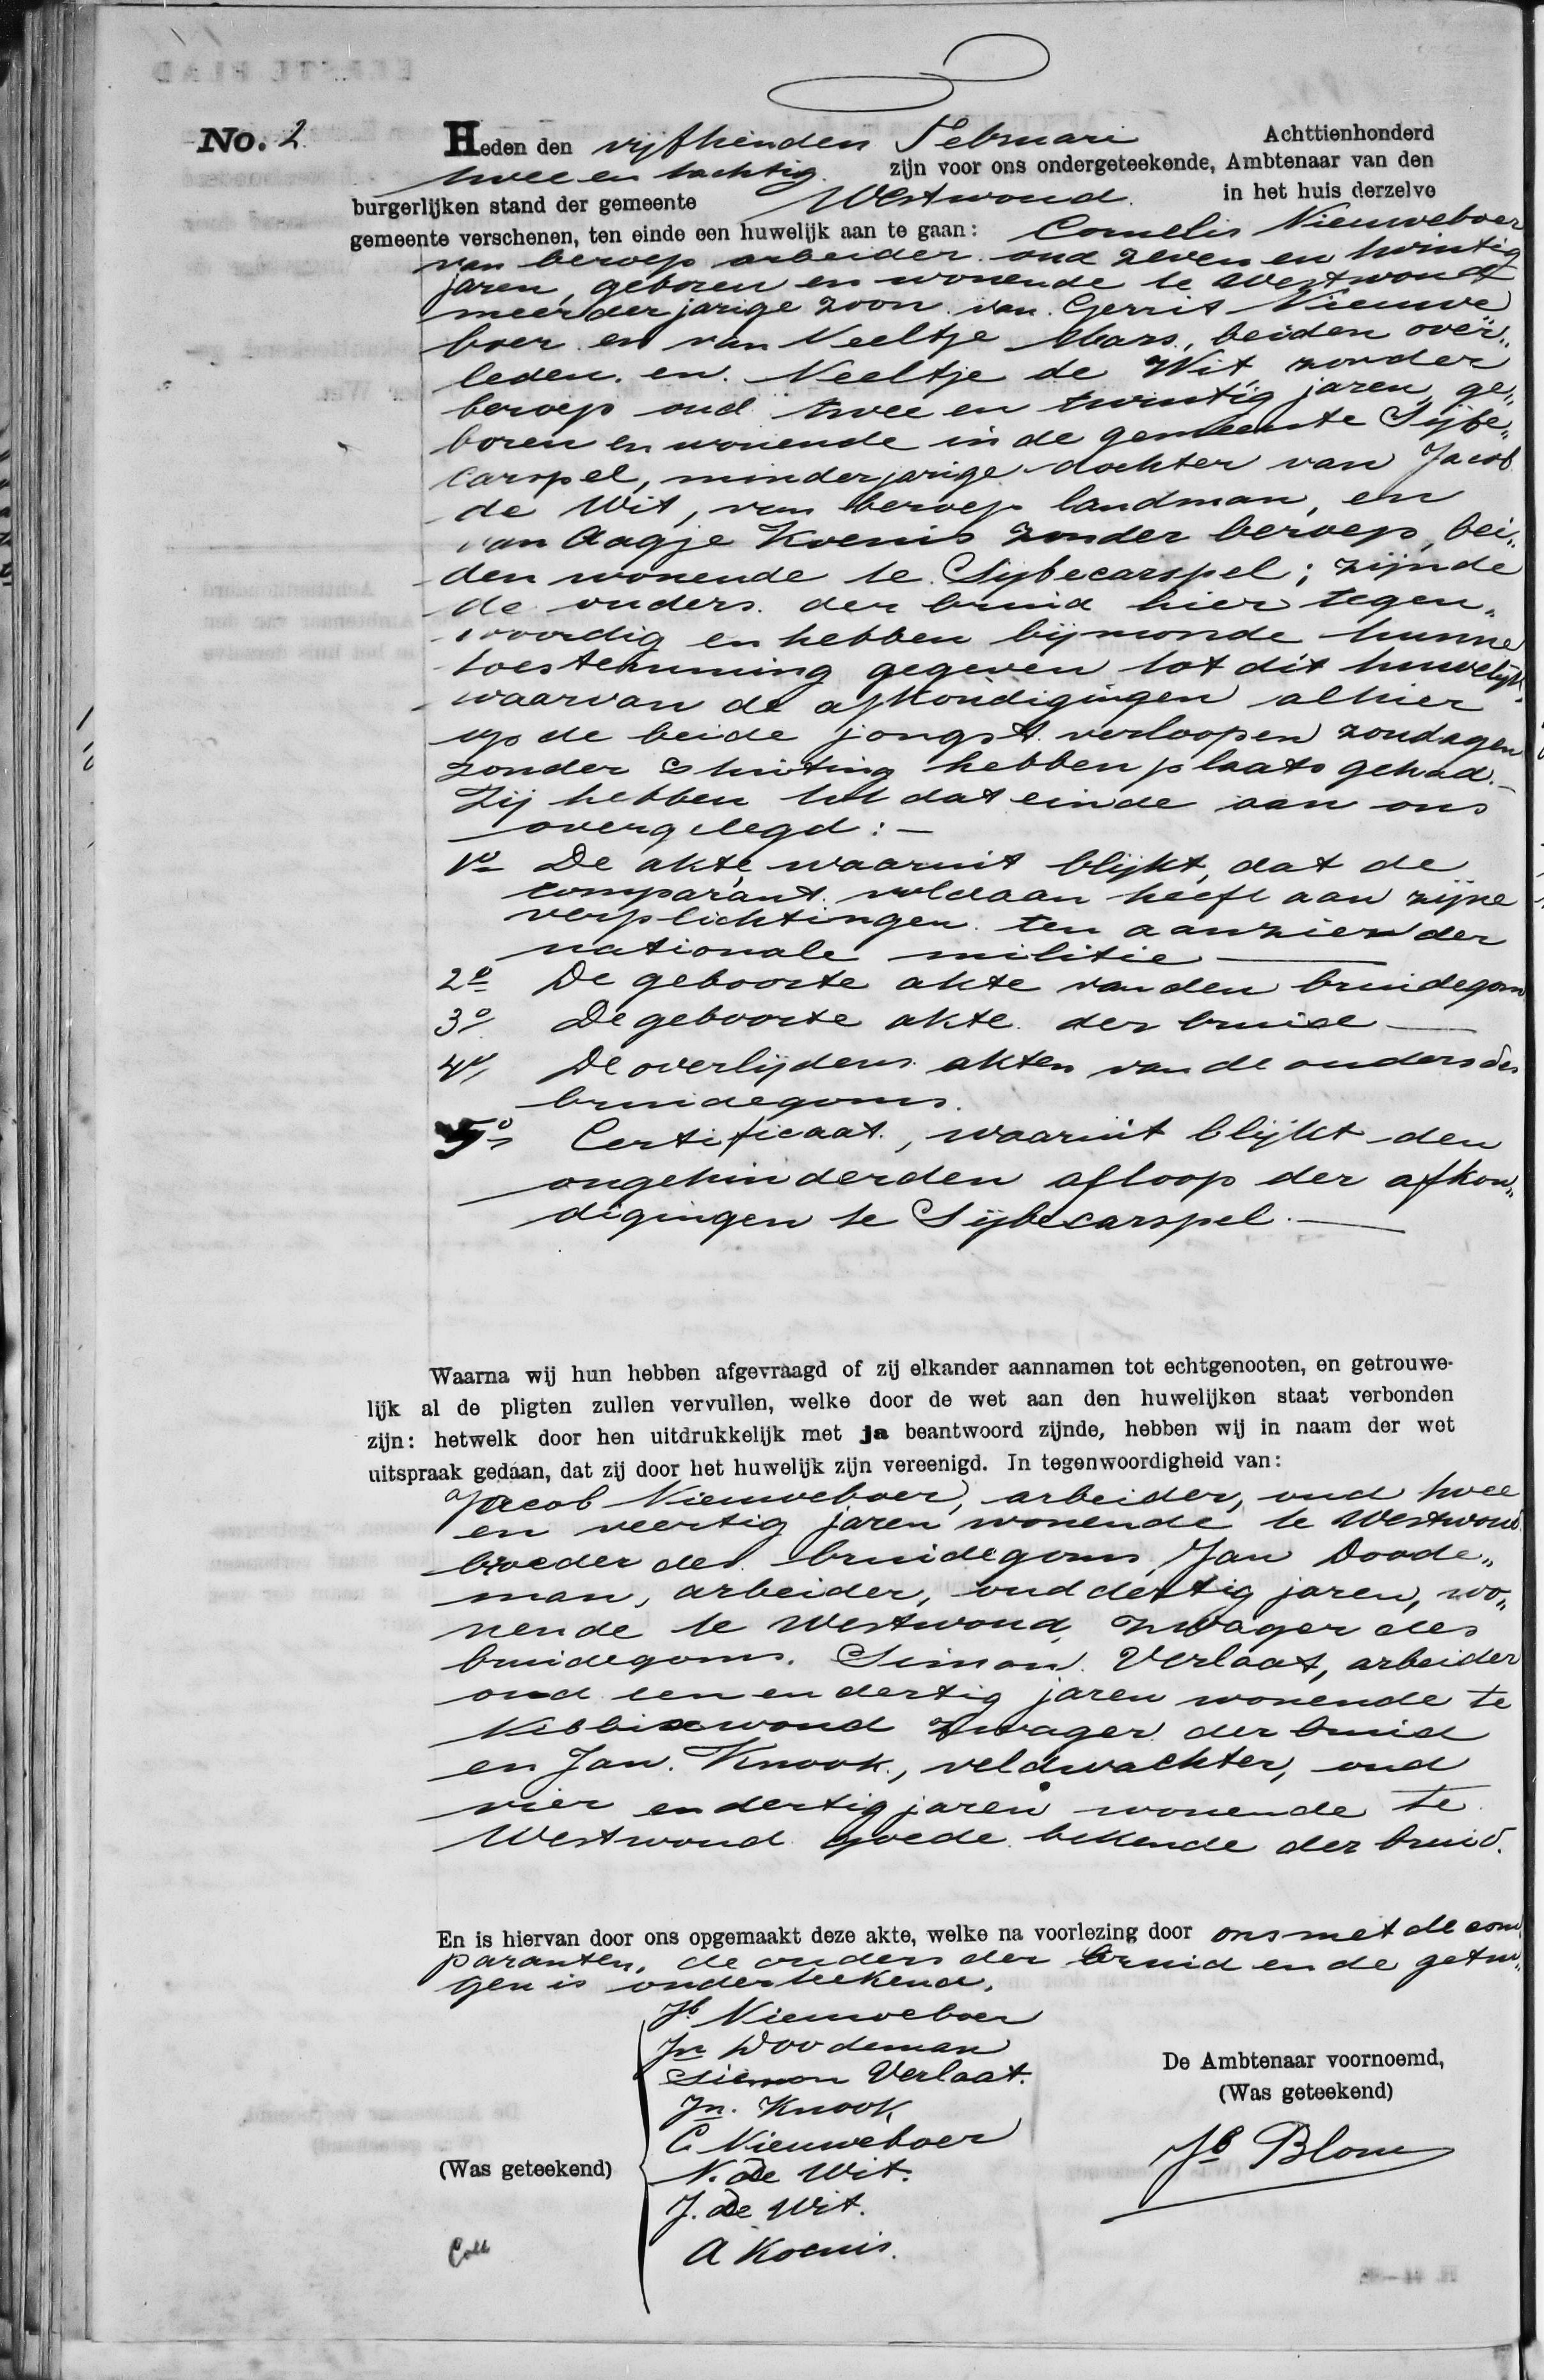 No. 2
Heden den vijftienden Februari Achttienhonderd
twee en tachtig zijn voor ons ondergeteekende, Ambtenaar van den
burgerlijken stand der gemeente Westwoud. in het huis derzelve
gemeente verschenen, ten einde een huwelijk aan te gaan: Cornelis Nieuweboer
van beroep arbeider oud zeven en twintig
jaren, geboren en wonende te Westwoud
meerderjarige zoon van Gerrit Nieuwe
boer en van Neeltje Mars, beiden over„
leden. en Neeltje de Wit, zonder
beroep oud twee en twintig jaren, ge„
boren en wonende in de gemeente Sijbe„
carspel, minderjarige dochter van Jacob
de Wit, van beroep landman, en
van Aagje Koenis zonder beroep, bei„
den wonende te Sijbecarspel; zijnde
de ouders der bruid hier tegen„
woordig en hebben bij monde hunne
toestemming gegeven tot dit huwelijk,
waarvan de afkondigingen alhier
op de beide jongst verloopen zondagen
zonder stuiting hebben plaats gehad.—
Zij hebben tot dat einde aan ons
overgelegd:—
1o De akte, waaruit blijkt, dat de
comparant voldaan heeft aan zijne
verplichtingen ten aanzien der
nationale militie —
2o De geboorte akte van den bruidegom
3o De geboorte akte der bruid —
4o De overlijdens akten van de ouders des
bruidegoms.
5o Certificaat, waaruit blijkt den
ongehinderden afloop der afkon„
digingen te Sijbecarspel.—
Waarna wij hun hebben afgevraagd of zij elkander aannamen tot echtgenooten, en getrouwe-
lijk al de pligten zullen vervullen, welke door de wet aan den huwelijken staat verbonden
zijn: hetwelk door hen uitdrukkelijk met ja beantwoord zijnde, hebben wij in naam der wet
uitspraak gedaan, dat zij door het huwelijk zijn vereenigd. In tegenwoordigheid van:
Jacob Nieuweboer, arbeider, oud twee
en veertig jaren wonende te Westwoud
broeder des bruidegoms, Jan Doode„
man, arbeider, oud dertig jaren, wo„
nende te Westwoud, zwager des
bruidegoms. Simon Verlaat, arbeider
oud een en dertig jaren wonende te
Nibbixwoud zwager der bruid
en Jan Knook, veldwachter, oud
vier en dertig jaren wonende te
Westwoud goede bekende der bruid.
En is hiervan door ons opgemaakt deze akte, welke na voorlezing door ons met de com
paranten, de ouders der bruid en de getui„
gen is onderteekend.
(Was geteekend)
Jb Nieuweboer
Jn Doodeman
Siemon Verlaat.
Jn. Knook
C Nieuweboer
N. de Wit.
J. de Wit.
A Koenis.
De Ambtenaar voornoemd,
(Was geteekend)
Jb Blom
Coll